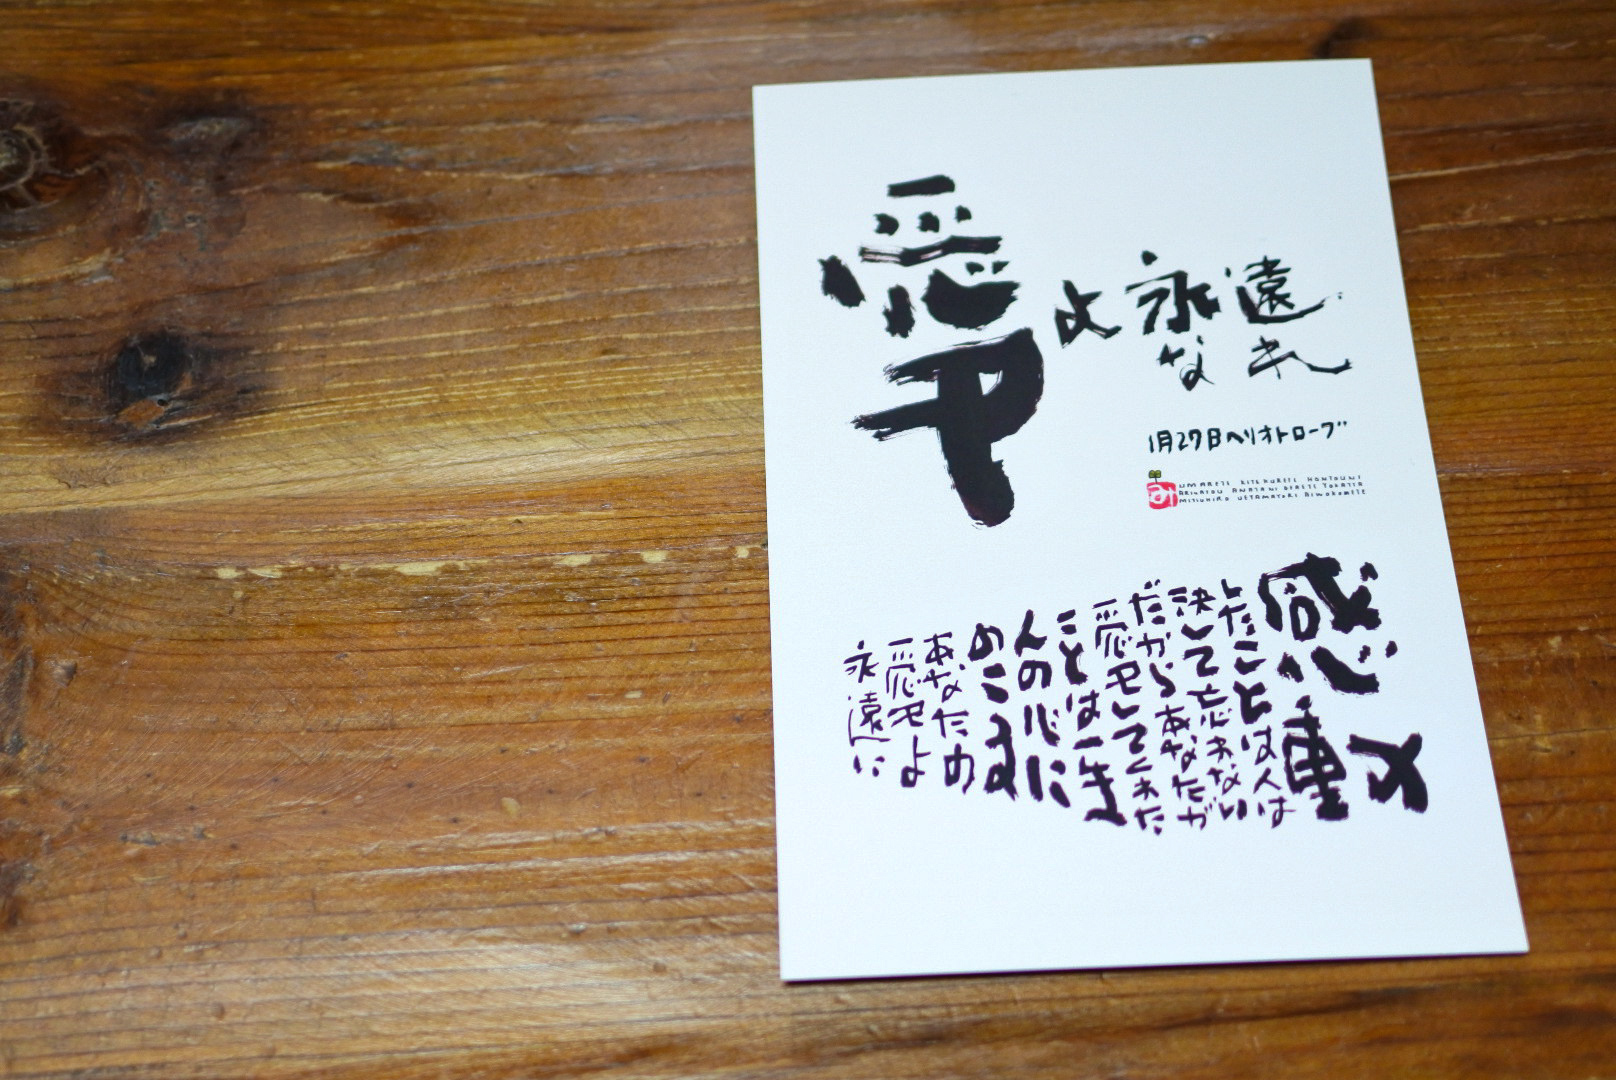 愛よ永遠
なれ
1月27日ヘリオトロープ
み
UMARETE KITEKURETE HONTOUNI
ARIGATOU ANATANI DERETE YOKATTA
MITSUHIRO UETAMATORI AIWOKOMETE
感動
したことは人は
決して忘れない
だからあなたが
愛をしてくれた
ことは一生
人の心に
のこります
あなたの
愛をよ
永遠に